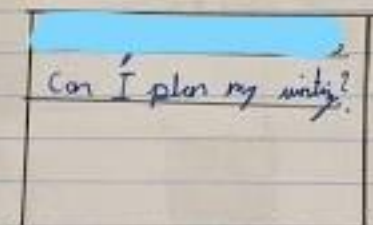 Can I plan my writing?